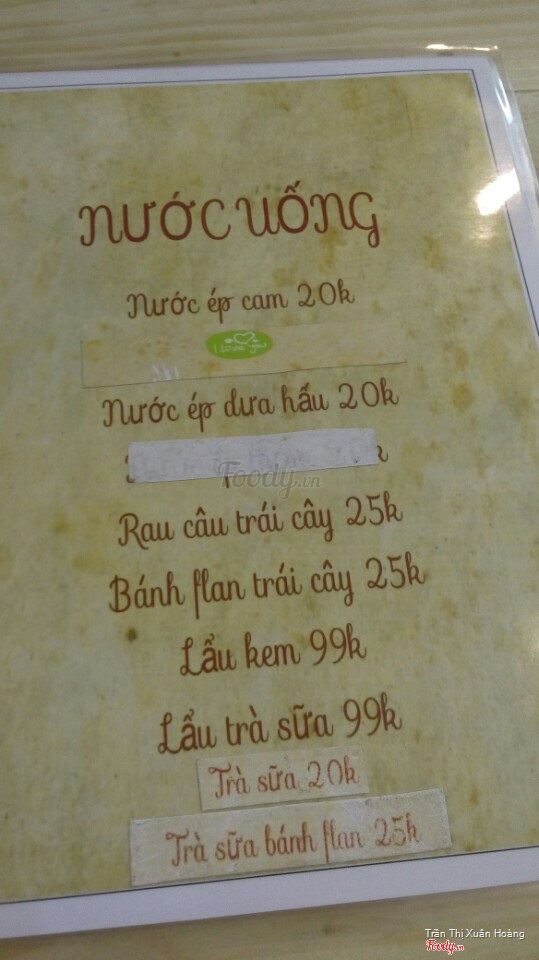 NƯỚC UỐNG
Nước ép cam 20k
I Love you
Nước ép dưa hấu 20k
Foody.vn
Rau câu trái cây 25k
Bánh flan trái cây 25k
Lẩu kem 99k
Lẩu trà sữa 99k
Trà sữa 20k
Trà sữa bánh flan 25k
Trần Thị Xuân Hoàng
Foody.vn